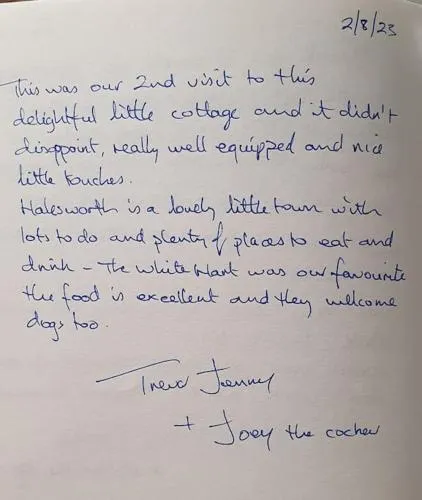 2/8/23
This was our 2nd visit to this
delightful little cottage and it didn't
disappoint, really well equipped and nice
little touches.
Halesworth is a lovely little town with
lots to do and plenty of places to eat and
drink - The White Hart was our favourite
the food is excellent and they welcome
dogs too.
Trevor Jenny
+ Joey the cocker